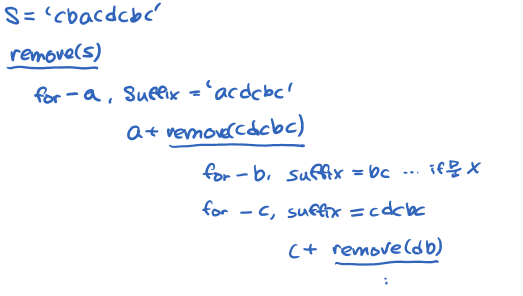 S = 'cbacdcbc'
remove(s)
for - a, suffix = 'acdcbc'
a + remove(cdcbc)
for - b, suffix = bc ... if문 X
for - c, suffix = cdcbc
c + remove(db)
: